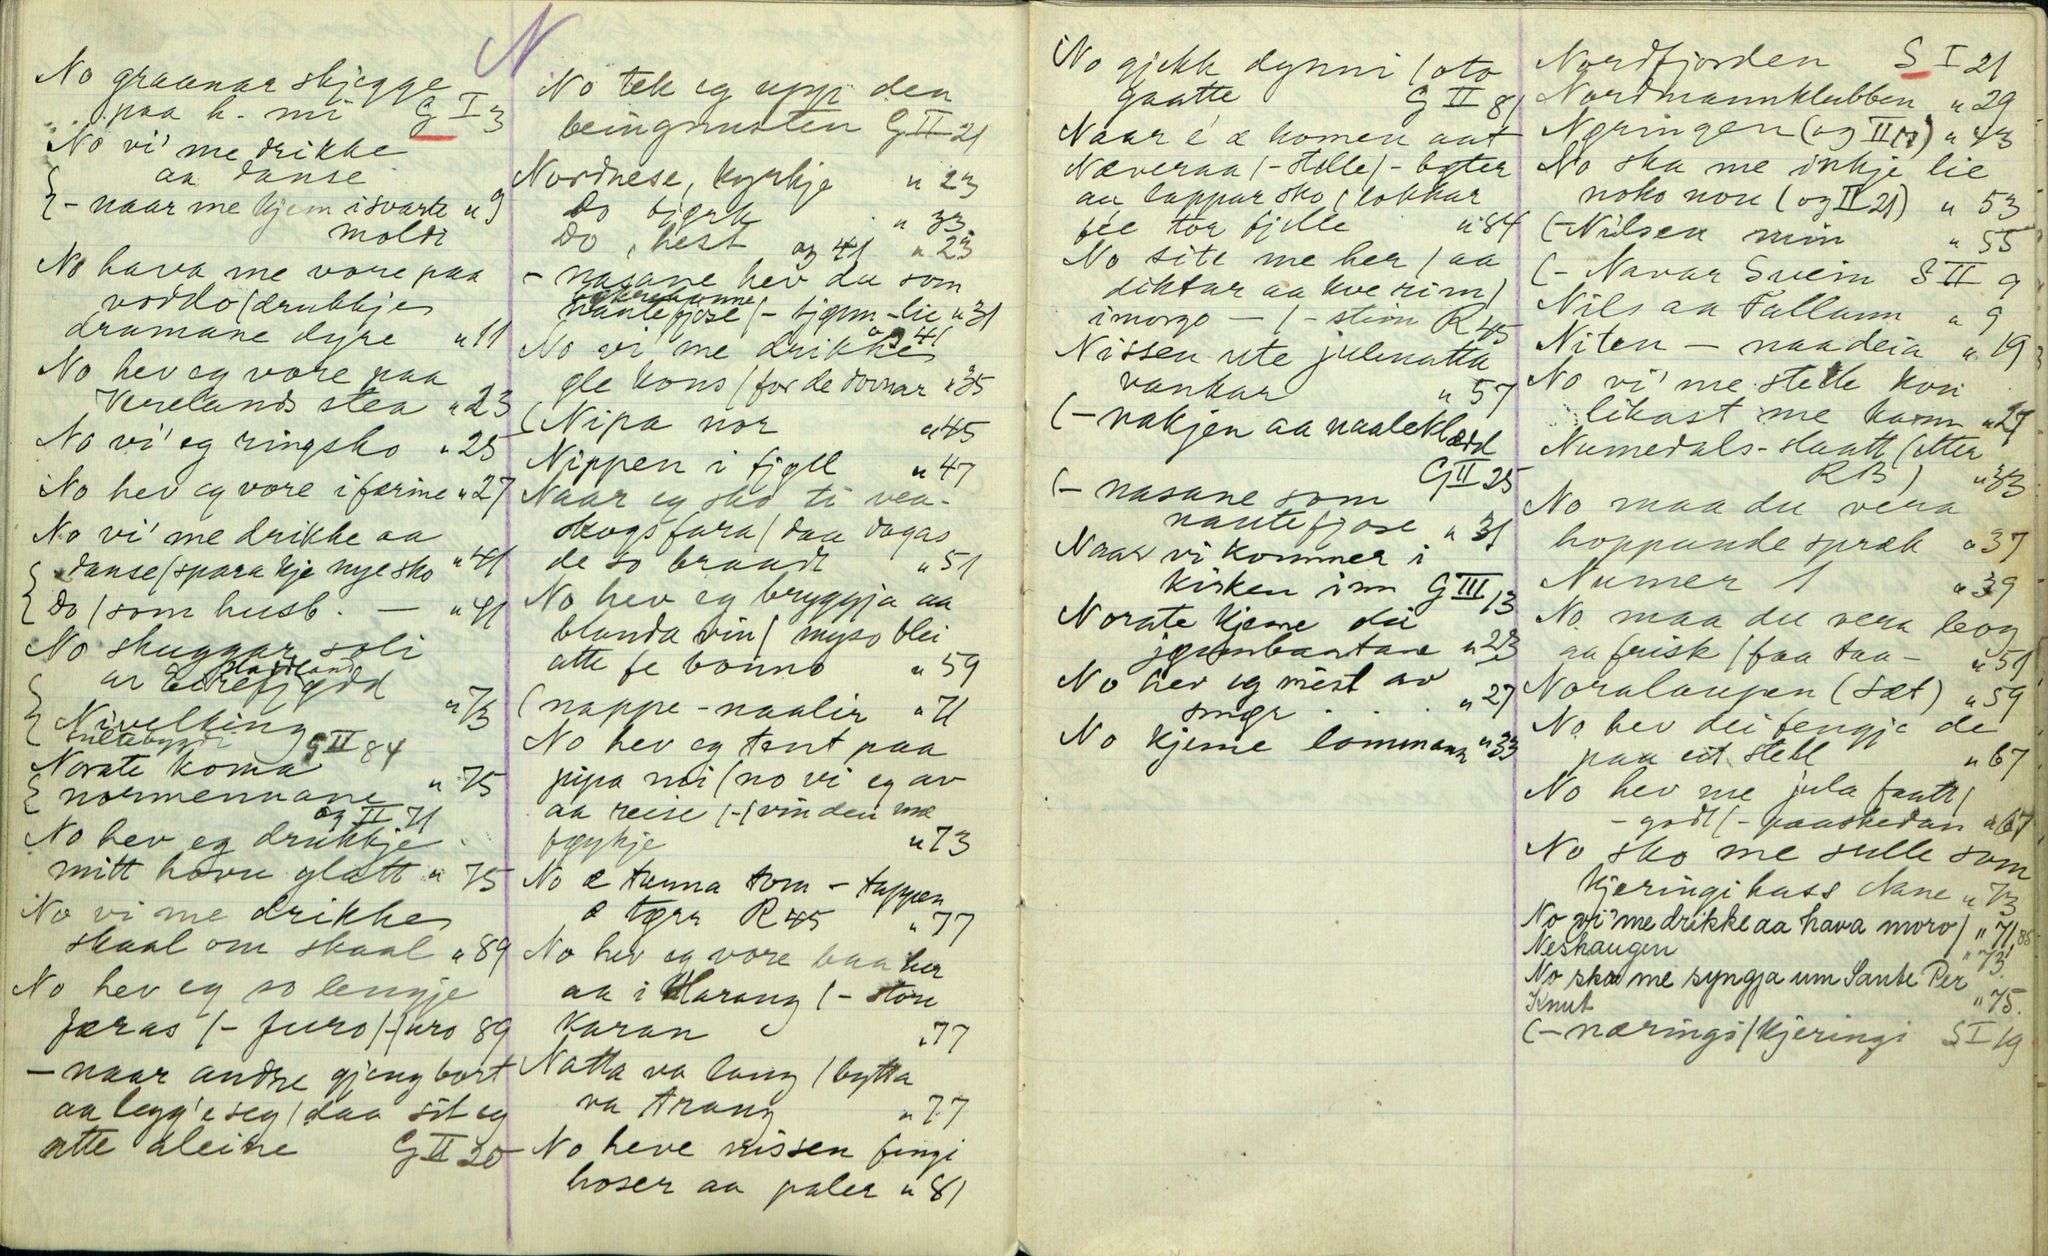 N
No graanar skjegge
paa h. mi G I 3
No vi' me drikke
aa danse
{ - naar me kjem i svarte " 9
moldi
No hava me vore paa
voddo / drukkje
dramane dyre " 11
No hev eg vore paa
Vereland stea " 23
No vi' eg ringsko " 25
No hev eg vore i færine " 27
No vi' me drikke aa
{ danse / spara kje nye sko " 41
{ Do / som husb. — " 41
No skuggar soli
ur
" 73
{ Nivelking
Tultebygdi G II 84
Norate koma " 75
{ normennane
og II 71
No hev eg drukkje
mitt hovu glatt " 75
No vi me drikke
skaal om skaal " 89
No hev eg so lengje
færas / - furo / - / uro 89
- naar andre gjeng bort
aa legg' e seg / daa sit eg
atte aleine G II 20
No tek eg upp den
beingrusten G II 21
Nordnese, kyrkje " 23
Do bjørk " 33
Do, hest og 41 " 23
- nasane hev du som
nautefjose / - bjønn - lie " 31
og 41
No vi' me drikke
gle kons / for de dovnar " 35
( Nipa nor " 45
Nippen i fjøll " 47
Naar eg sko ti vea-
skogs fara / daa dagas
de so braadt " 51
No hev eg bryggja aa
blanda vin / myso blei
atte fe bonno " 59
( nappe - naalir " 71
No hev eg tent paa
pipa mi / no vi eg av
aa reise / - / vinden mæ
føykje " 73
No æ tunna tom - tappen
æ tørr R 45 " 77
No hev eg vore baa her
aa i Harang / - store
karan " 77
Natta va lang / bytta
va trang " 77
No heve nissen fingi
hoser aa paler " 81
No gjekk dynni / oto
gaatte G II 81
Naar e' æ komen aat
Næveraa / - stelle / - bøter
aa lappar sko / lokkar
fee tor fjelle " 84
No site me her / aa
diktar aa kve rim /
imorgo — / - stion R 45
Nissen ute julenatta
vankar " 57
( - nakjen aa naaleklædd
G II 25
( - nasane som
nautefjose " 31
Naar vi kommer i
kirken inn G III 13
Norate kjeme dei
jønnbantane " 23
No hev eg mist av
smør . . . " 27
No kjeme lommann " 33
Nordfjorden S I 21
Nordmannklubben " 29
Nøringen (og II 17) " 43
No ska me inkje lie
noko non (og II 21) " 53
( - Nilsen min " 55
( - Navar Svein S II 9
Nils aa Tallaun " 9
Niten — naadeia " 19
No vi' me stelle kon
likast me kann " 27
Numedals-slaatt (etter
RB) " 33
No maa du vera
hoppande spræk " 37
Numer 1 " 39
No maa du vera leog
aa frisk / faa taa - " 51
Noralaupen (Sæt) " 59
No hev dei fengje de
paa eit stell " 67
No hev me jula faatt /
- godt / - paaskedan " 67
No sko me sulle som
kjeringi hass Nane " 73
No vi' me drikke aa hava moro / " 71, 88
Neshaugen " 73
No ska me syngja um Sante Per
Knut " 75.
( - nærings / kjeringi S I 19